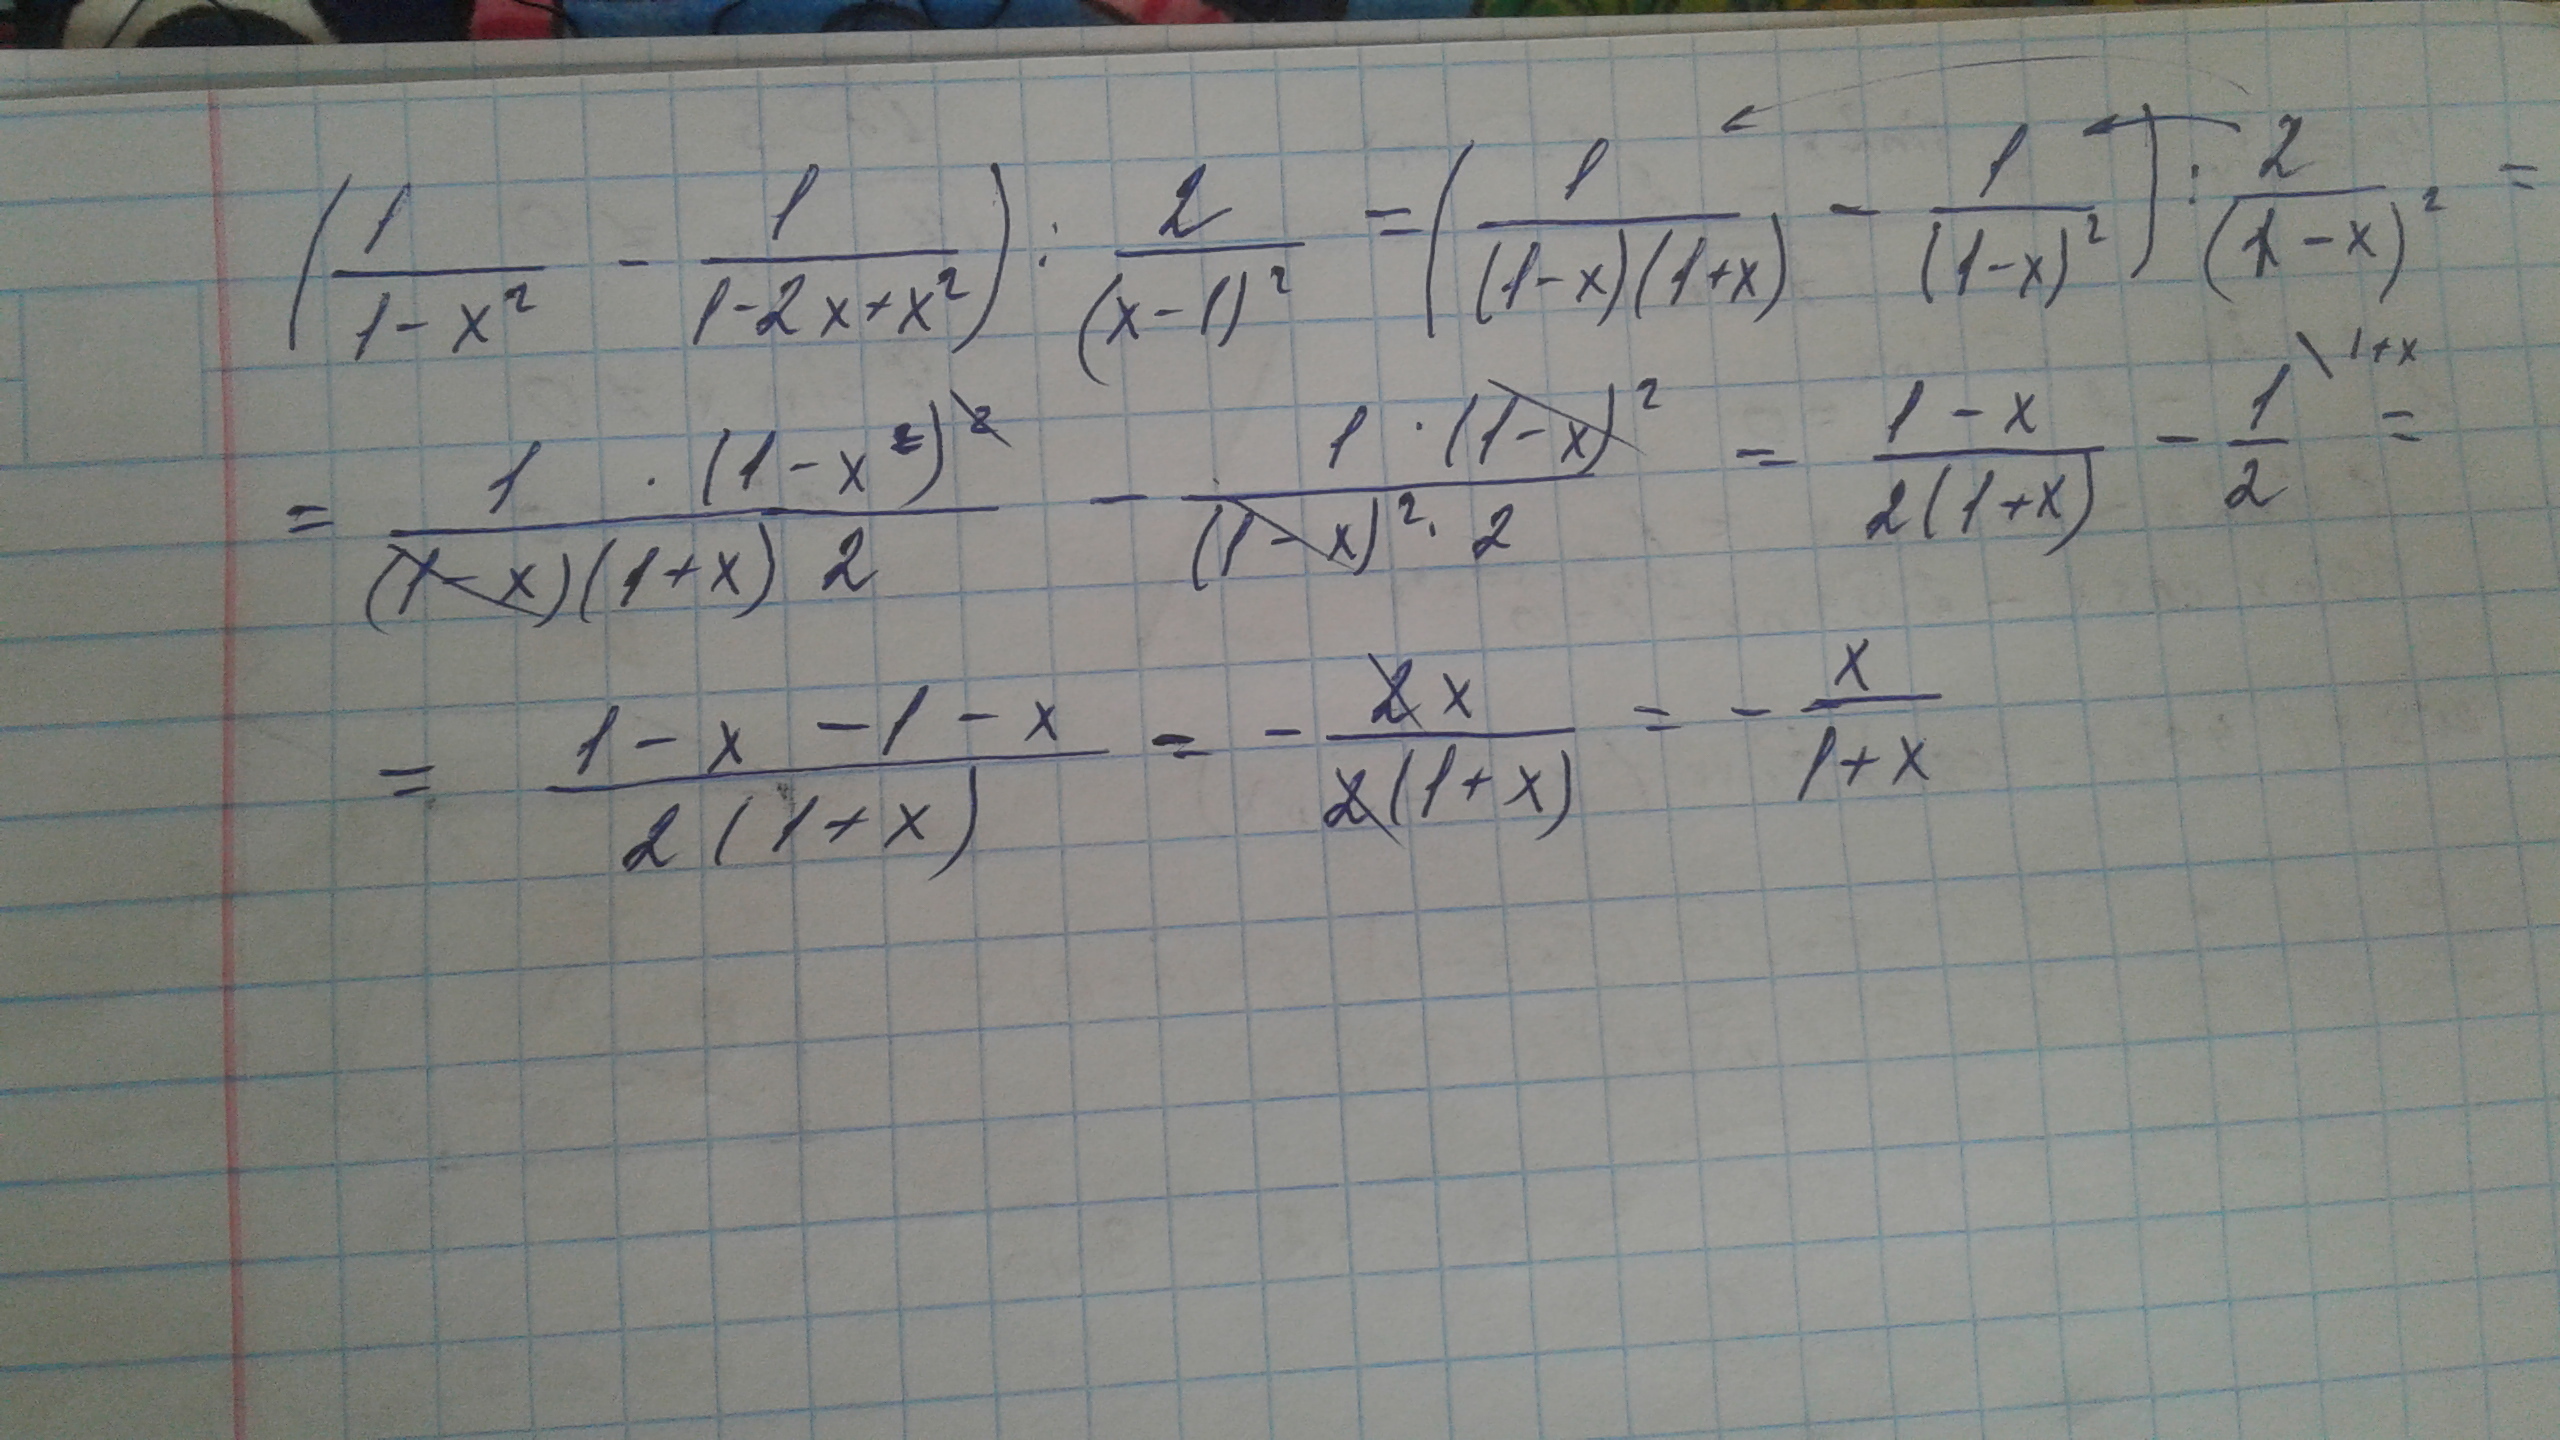 (1/(1-x²) - 1/(1-2x+x²)) : 2/(x-1)² = (1/((1-x)(1+x)) - 1/(1-x)²) : 2/(1-x)² =
= (1 · (1-x²)²)/((1-x)(1+x) 2) - (1 · (1-x)²)/((1-x)² · 2) = (1-x)/(2(1+x)) - 1/2 \ 1+x =
= (1-x-1-x)/(2(1+x)) = - 2x/(2(1+x)) = - x/(1+x)